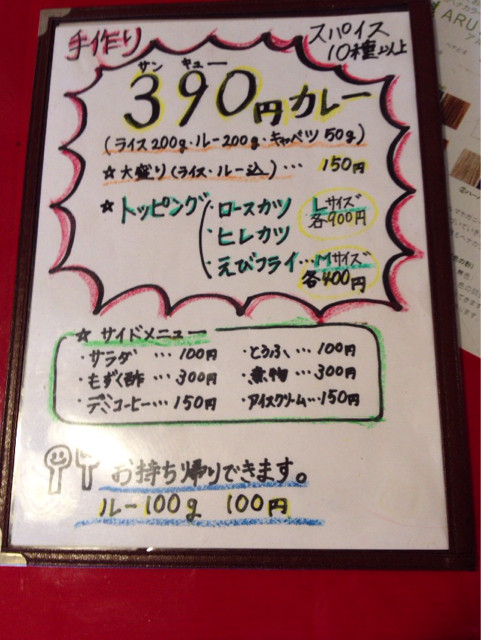 手作り
スパイス
10種以上
サン キュー
390円カレー
(ライス200g・ルー200g・キャベツ50g)
☆大盛り(ライス・ルー込)… 150円
☆トッピング
・ロースカツ
・ヒレカツ
・えびフライ
Lサイズ
各900円
…Mサイズ
各400円
☆サイドメニュー
・サラダ …100円
・とうふ…100円
・もずく酢 …300円
・煮物…300円
・デミコーヒー…150円
・アイスクリーム…150円
お持ち帰りできます。
ルー100g 100円
ARU